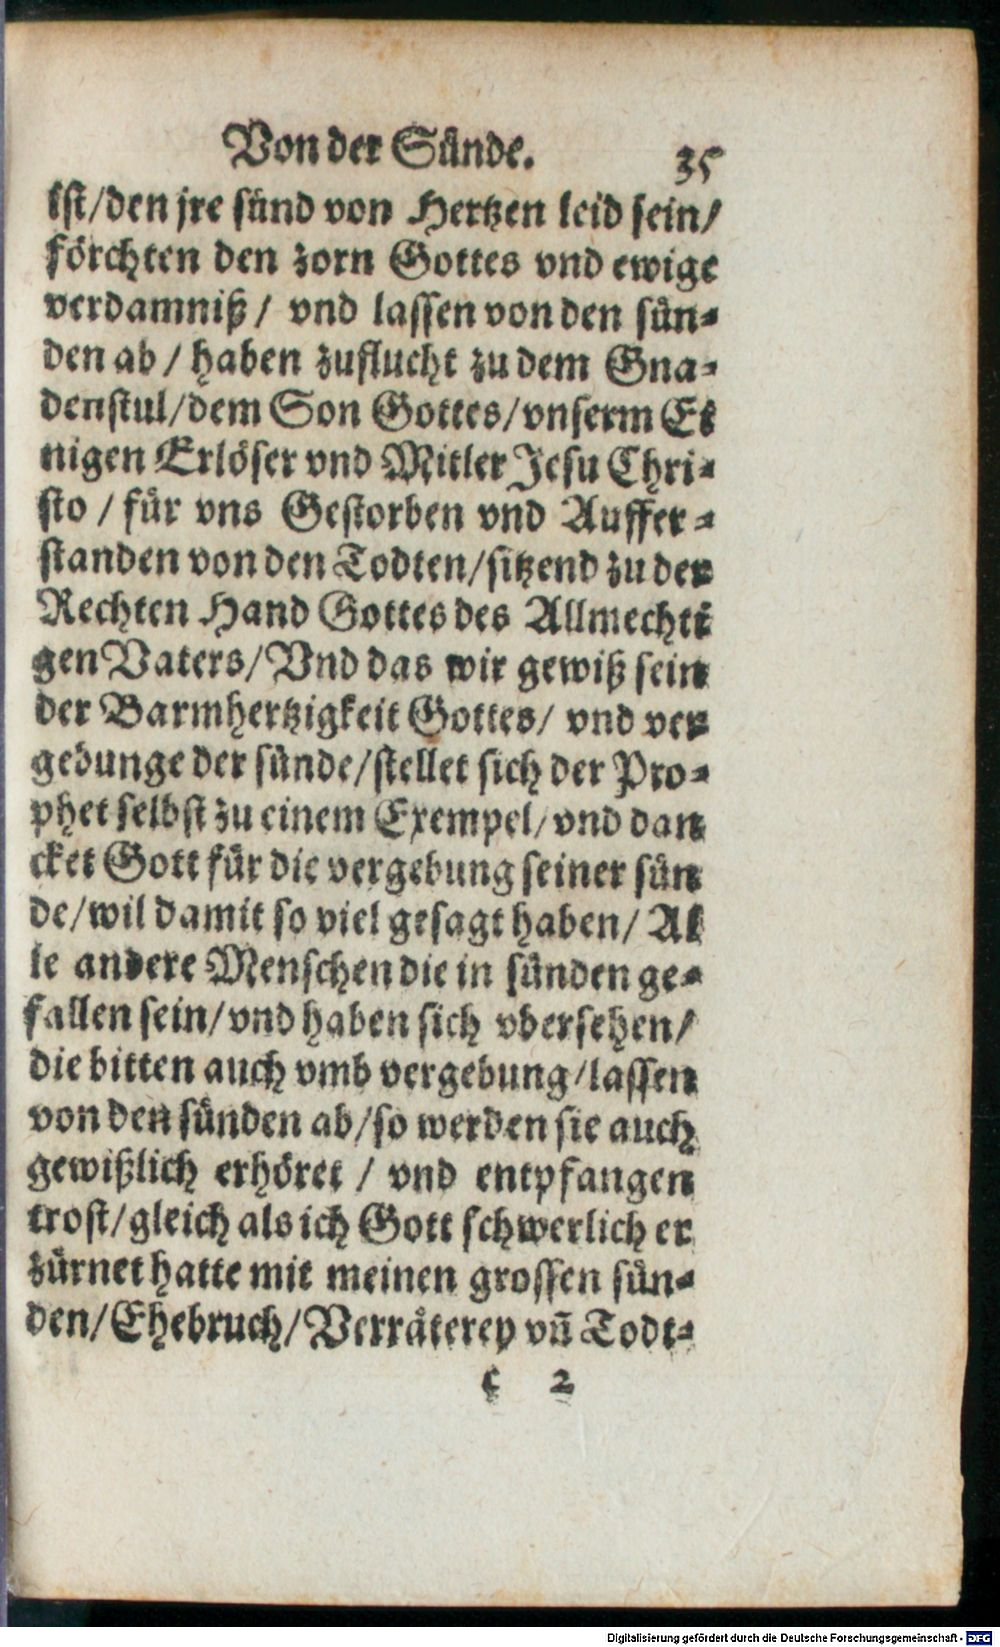 Von der Sünde. 35
ist/den jre sünd von Hertzen leid sein/
förchten den zorn Gottes vnd ewige
verdamniß/ vnd lassen von den sün-
den ab/ haben zuflucht zu dem Gna-
denstul/dem Son Gottes/vnserm Ei
nigen Erlöser vnd Mitler Jesu Chri-
sto / für vns Gestorben vnd Auffer-
standen von den Todten/sitzend zu der
Rechten Hand Gottes des Allmechti
gen Vaters/Vnd das wir gewiß sein
der Barmhertzigkeit Gottes/ vnd ver
gebunge der sünde/stellet sich der Pro-
phet selbst zu einem Exempel/vnd dan
cket Gott für die vergebung seiner sün
de/wil damit so viel gesagt haben/ Al
le andere Menschen die in sünden ge-
fallen sein/vnd haben sich vbersehen/
die bitten auch vmb vergebung/lassen
von den sünden ab/so werden sie auch
gewißlich erhöret / vnd entpfangen
trost/gleich als ich Gott schwerlich er
zürnet hatte mit meinen grossen sün-
den/Ehebruch/Verräterey vñ Todt-
c 2
Digitalisierung gefördert durch die Deutsche Forschungsgemeinschaft - DFG